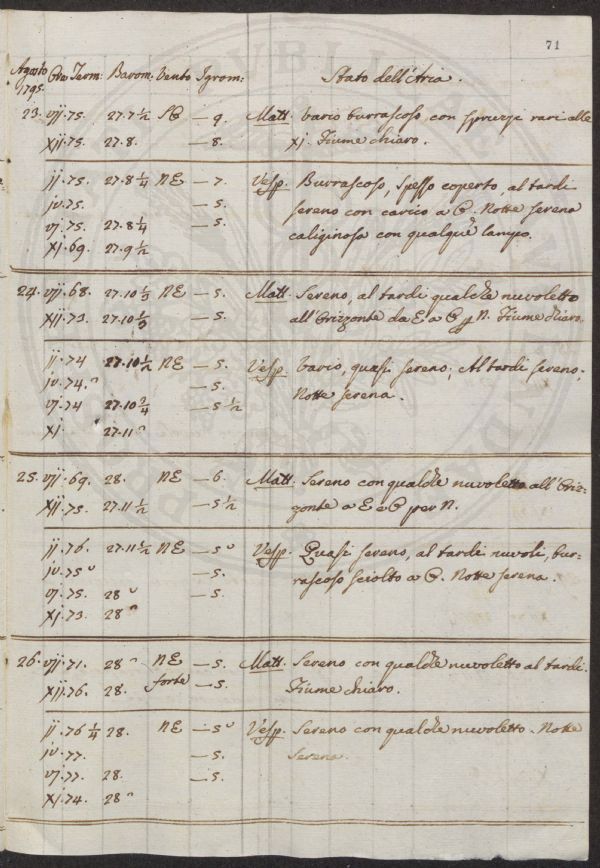 71
Agosto 1795. Ore Term: Barom: Vento Igrom: Stato dell'Aria.
23. vij. 75. 27. 7 ½ SO — 9. Matt. Vario burrascoso, con spruzzi rari alle
xij. 75. 27. 8. — 8. xj. Fiume chiaro.
ij. 75. 27. 8 ¼ NE — 7. Vesp. Burrascoso, spesso coperto, al tardi
iv. 75. — 5. sereno con carico a O. Notte serena
vj. 75. 27. 8 ¼ — 5. caliginosa con qualque lampo.
xj. 69. 27. 9 ½
24. vij. 68. 27. 10 ⅓ NE — 5. Matt. Sereno, al tardi qualche nuvoletto
xij. 73. 27. 10 ⅓ — 5. all'Orizzonte da E a O p N. Fiume chiaro.
ij. 74 27. 10 ½ NE — 5. Vesp. Vario, quasi sereno; Al tardi sereno;
iv. 74. " — 5. Notte serena.
vj. 74 27. 10 ¾ — 5 ½
xj. 27. 11 "
25. vij. 69. 28. NE — 6. Matt. Sereno con qualche nuvoletto all'Oriz-
xij. 75. 27. 11 ½ — 5 ½ zonte a E e O per N.
ij. 76. 27. 11 ½ NE — 5 " Vesp. Quasi sereno, al tardi nuvoli, bur-
iv. 75 " — 5. rascoso sciolto a O. Notte serena.
vj. 75. 28 " — 5.
xj. 73. 28 "
26. vij. 71. 28 " NE — 5. Matt. Sereno con qualche nuvoletto al tardi.
xij. 76. 28. forte — 5. Fiume chiaro.
ij. 76 ¼ 28. NE — 5 " Vesp. Sereno con qualche nuvoletto. Notte
iv. 77. — 5. serena.
vj. 77. 28. — 5.
xj. 74. 28 "